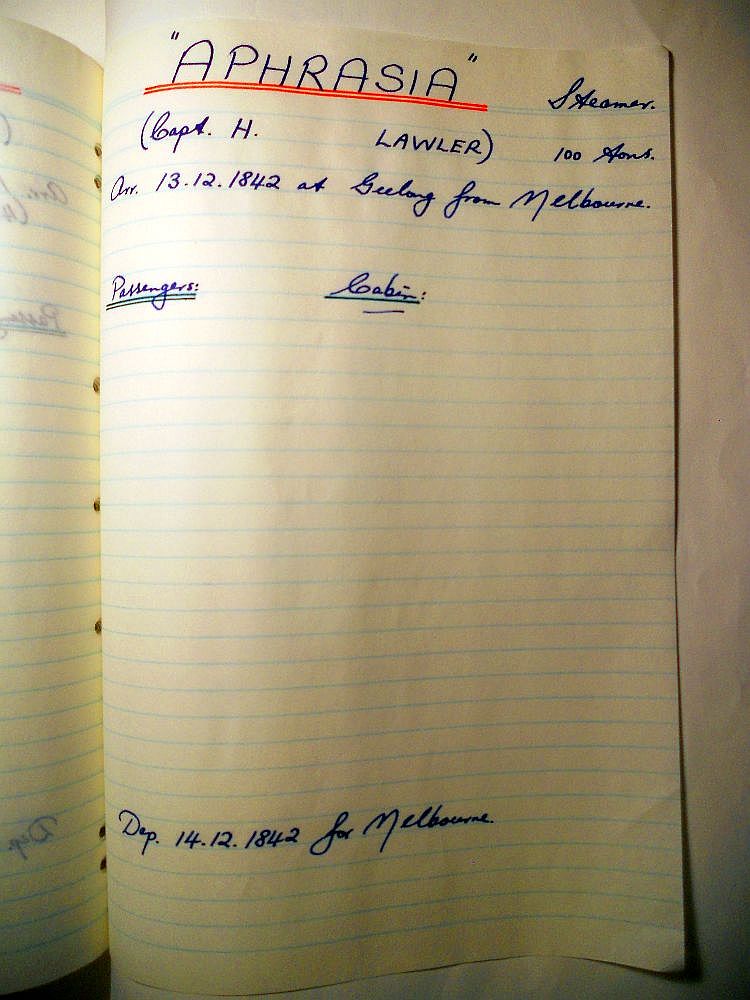 "APHRASIA" Steamer.
(Capt. H. LAWLER) 100 tons.
Arr. 13.12.1842 at Geelong from Melbourne.
Passengers: Cabin:
—
Dep. 14.12.1842 for Melbourne.